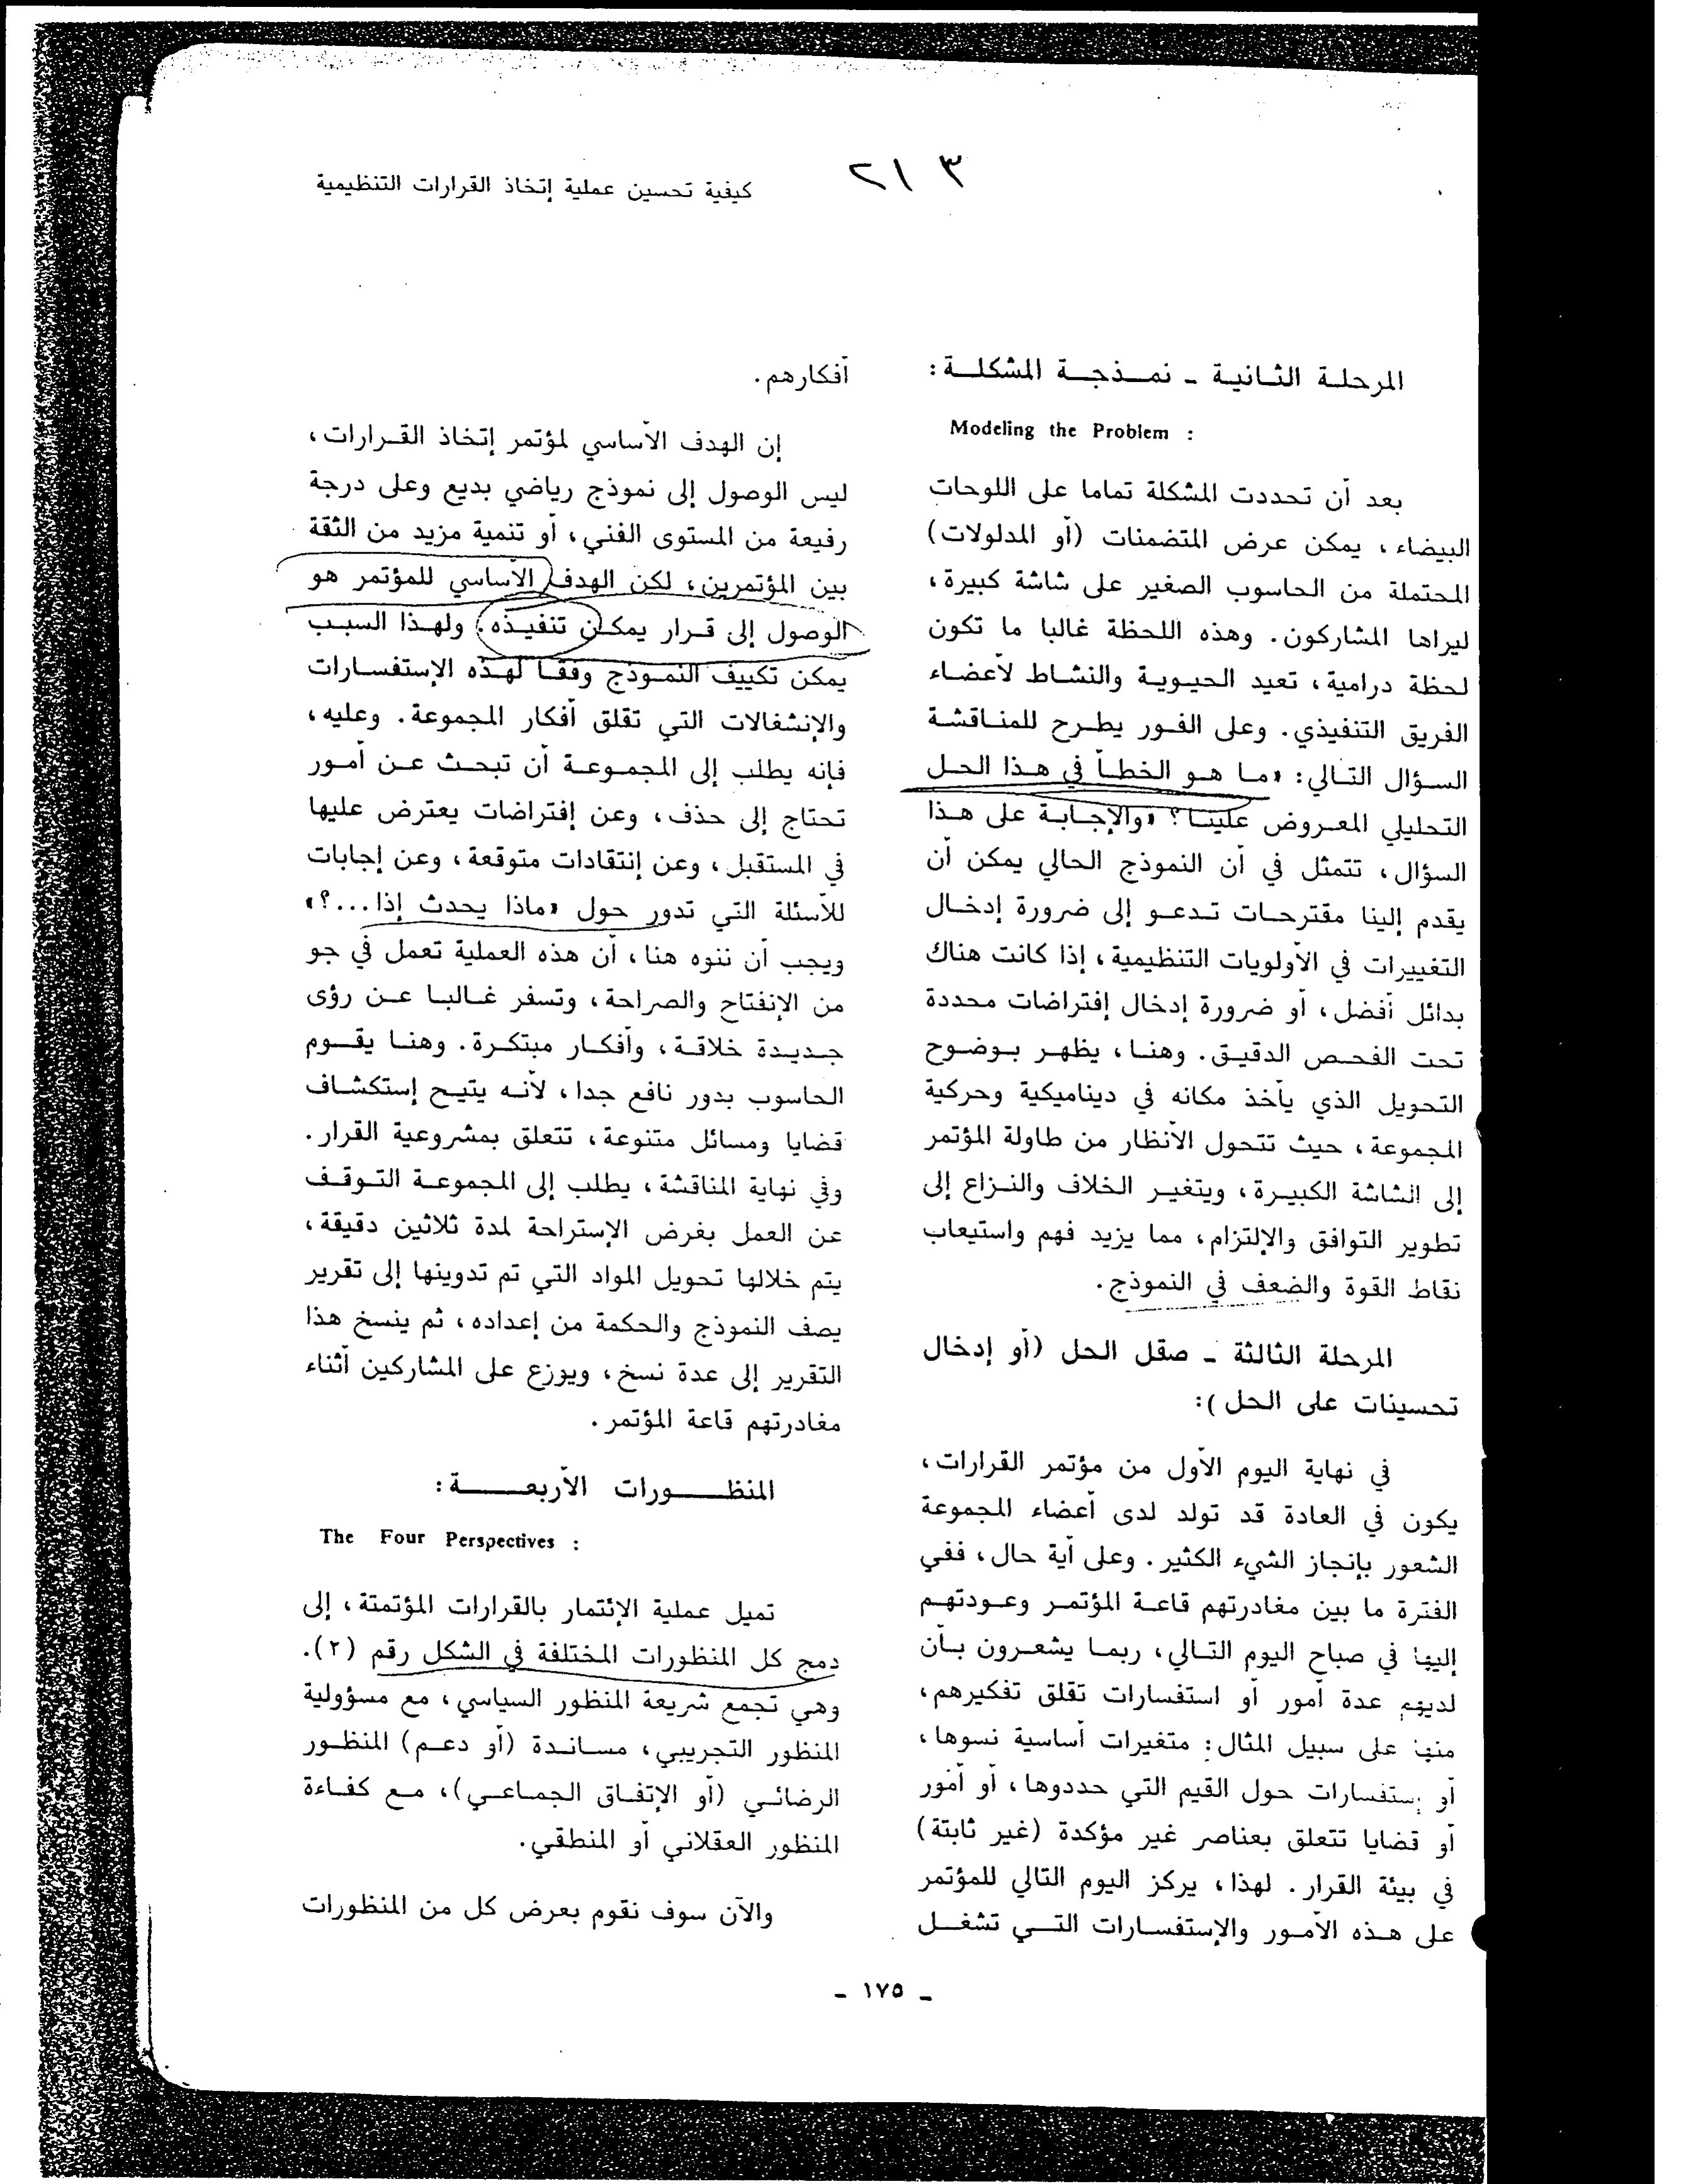 كيفية تحسين عملية إتخاذ القرارات التنظيمية
٢١٣
المرحلة الثانية ـ نمذجة المشكلة :
Modeling the Problem :
بعد أن تحددت المشكلة تماما على اللوحات
البيضاء ، يمكن عرض المتضمنات (أو المدلولات)
المحتملة من الحاسوب الصغير على شاشة كبيرة ،
ليراها المشاركون . وهذه اللحظة غالبا ما تكون
لحظة درامية ، تعيد الحيوية والنشاط لأعضاء
الفريق التنفيذي . وعلى الفور يطرح للمناقشة
السؤال التالي : «ما هو الخطأ في هذا الحل
التحليلي المعروض علينا؟ «والإجابة على هذا
السؤال ، تتمثل في أن النموذج الحالي يمكن أن
يقدم إلينا مقترحات تدعو إلى ضرورة إدخال
التغييرات في الأولويات التنظيمية ، إذا كانت هناك
بدائل أفضل ، أو ضرورة إدخال إفتراضات محددة
تحت الفحص الدقيق . وهنا ، يظهر بوضوح
التحويل الذي يأخذ مكانه في ديناميكية وحركية
المجموعة ، حيث تتحول الأنظار من طاولة المؤتمر
إلى الشاشة الكبيرة ، ويتغير الخلاف والنزاع إلى
تطوير التوافق والإلتزام ، مما يزيد فهم واستيعاب
نقاط القوة والضعف في النموذج .
المرحلة الثالثة ـ صقل الحل (أو إدخال
تحسينات على الحل ) :
في نهاية اليوم الأول من مؤتمر القرارات ،
يكون في العادة قد تولد لدى أعضاء المجموعة
الشعور بإنجاز الشيء الكثير . وعلى أية حال ، ففي
الفترة ما بين مغادرتهم قاعة المؤتمر وعودتهم
إليها في صباح اليوم التالي ، ربما يشعرون بأن
لديهم عدة أمور أو استفسارات تقلق تفكيرهم ،
منها على سبيل المثال : متغيرات أساسية نسوها ،
أو إستفسارات حول القيم التي حددوها ، أو أمور
أو قضايا تتعلق بعناصر غير مؤكدة (غير ثابتة)
في بيئة القرار . لهذا ، يركز اليوم التالي للمؤتمر
على هذه الأمور والإستفسارات التي تشغل
أفكارهم .
إن الهدف الأساسي لمؤتمر إتخاذ القرارات ،
ليس الوصول إلى نموذج رياضي بديع وعلى درجة
رفيعة من المستوى الفني ، أو تنمية مزيد من الثقة
بين المؤتمرين ، لكن الهدف الأساسي للمؤتمر هو
الوصول إلى قرار يمكن تنفيذه . ولهذا السبب
يمكن تكييف النموذج وفقا لهذه الإستفسارات
والإنشغالات التي تقلق أفكار المجموعة . وعليه ،
فإنه يطلب إلى المجموعة أن تبحث عن أمور
تحتاج إلى حذف ، وعن إفتراضات يعترض عليها
في المستقبل ، وعن إنتقادات متوقعة ، وعن إجابات
للأسئلة التي تدور حول «ماذا يحدث إذا ...؟»
ويجب أن ننوه هنا ، أن هذه العملية تعمل في جو
من الإنفتاح والصراحة ، وتسفر غالبا عن رؤى
جديدة خلاقة ، وأفكار مبتكرة . وهنا يقوم
الحاسوب بدور نافع جدا ، لأنه يتيح إستكشاف
قضايا ومسائل متنوعة ، تتعلق بمشروعية القرار .
وفي نهاية المناقشة ، يطلب إلى المجموعة التوقف
عن العمل بغرض الإستراحة لمدة ثلاثين دقيقة ،
يتم خلالها تحويل المواد التي تم تدوينها إلى تقرير
يصف النموذج والحكمة من إعداده ، ثم ينسخ هذا
التقرير إلى عدة نسخ ، ويوزع على المشاركين أثناء
مغادرتهم قاعة المؤتمر .
المنظورات الأربعة :
The Four Perspectives :
تميل عملية الإئتمار بالقرارات المؤتمتة ، إلى
دمج كل المنظورات المختلفة في الشكل رقم (٢) .
وهي تجمع شريعة المنظور السياسي ، مع مسؤولية
المنظور التجريبي ، مساندة (أو دعم) المنظور
الرضائي (أو الإتفاق الجماعي) ، مع كفاءة
المنظور العقلاني أو المنطقي .
والآن سوف نقوم بعرض كل من المنظورات
ـ ١٧٥ ـ